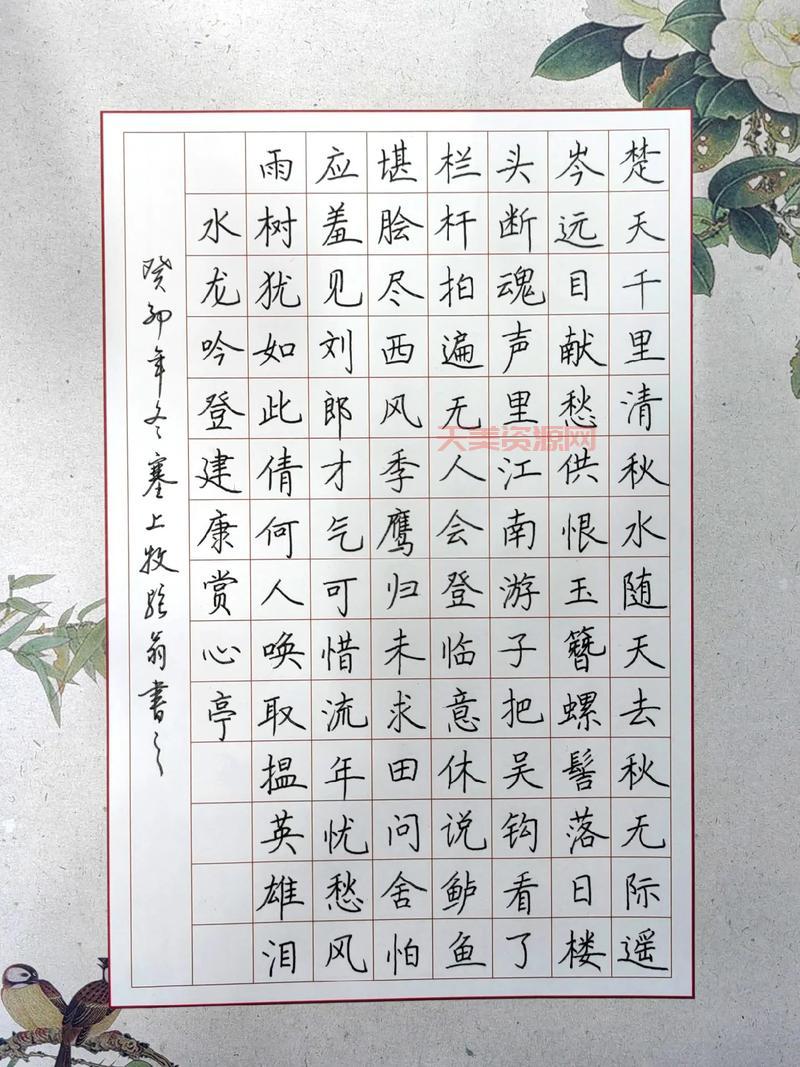 楚天千里清秋水随天去秋无际遥
岑远目献愁供恨玉簪螺髻落日楼
头断魂声里江南游子把吴钩看了
栏杆拍遍无人会登临意休说鲈鱼
堪脍尽西风季鹰归未求田问舍怕
应羞见刘郎才气可惜流年忧愁风
雨树犹如此倩何人唤取揾英雄泪
水龙吟登建康赏心亭
癸卯年冬塞上牧翁書之
天美资源网